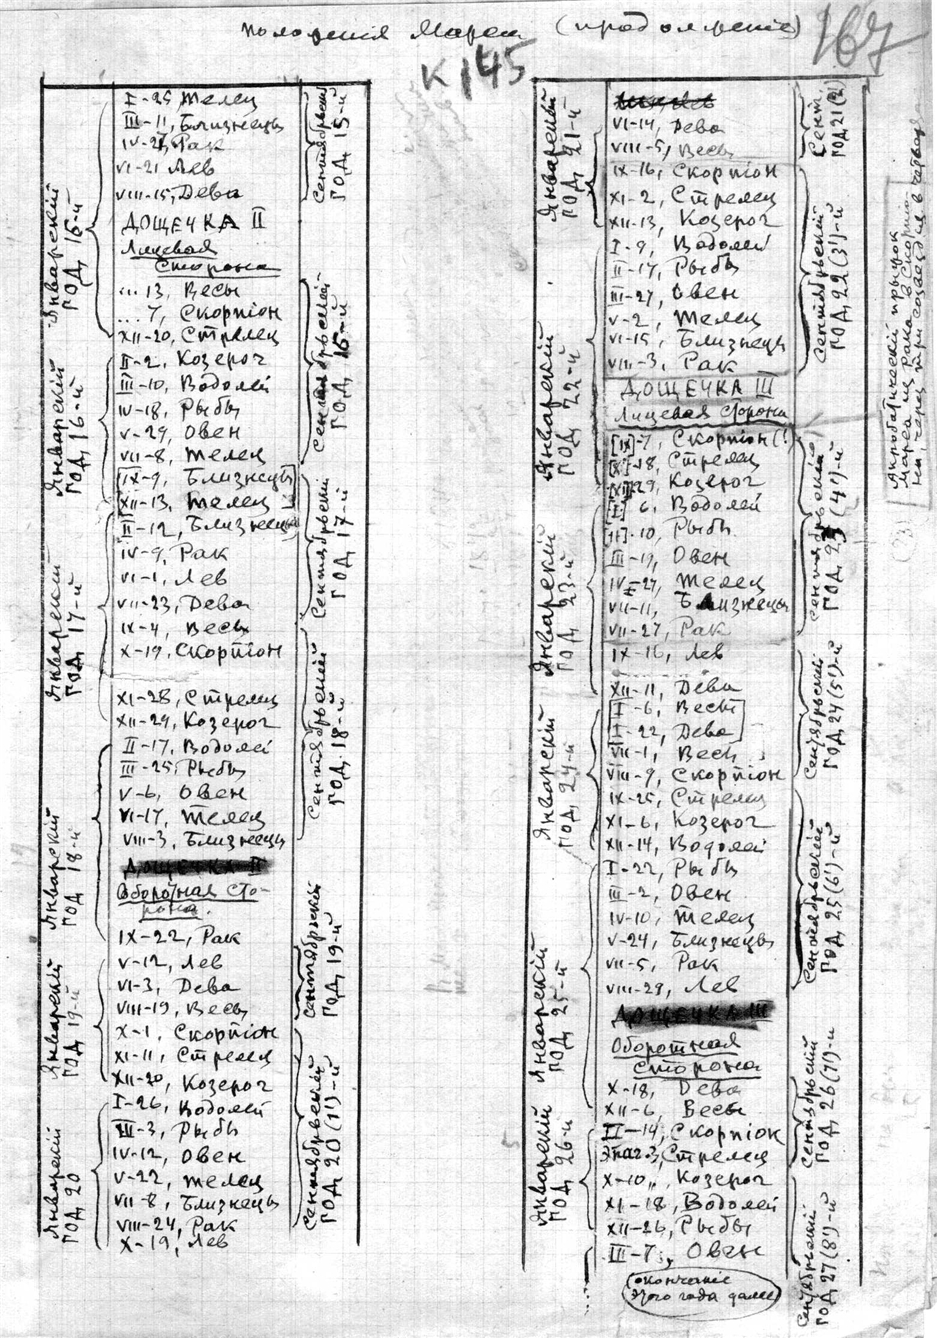 Положенія Марса (продолженіе)
167
К 145
Январскій год, 15-й
II-25, Телец
III-11, Близнецы
IV-25, Рак
VI-21 Лев
VIII-15, Дева
ДОЩЕЧКА II
Лицевая
Сторона
...13, Весы
...7, Скорпіон
XII-20, Стрелец
Январскій год, 16-й
II-2, Козерог
III-10, Водолей
IV-18, Рыбы
V-29, Овен
VII-8, Телец
[IX-9, Близнецы]
[XII-13, Телец]
Январскій год, 17-й
II-12, Близнецы
IV-9, Рак
VI-1, Лев
VII-23, Дева
IX-4, Весы
X-19, Скорпіон
XI-28, Стрелец
XII-29, Козерог
Январскій год 18-й
II-17, Водолей
III-25, Рыбы
V-6, Овен
VI-17, Телец
VIII-3, Близнецы
ДОЩЕЧКА II
Оборотная сто-
рона.
IX-22, Рак
Январскій год 19-й
V-12, Лев
VI-3, Дева
VIII-19, Весы
X-1, Скорпіон
XI-11, Стрелец
XII-20, Козерог
Январскій год 20
I-26, Водолей
III-3, Рыбы
IV-12, Овен
V-22, Телец
VII-8, Близнецы
VIII-24, Рак
X-19, Лев
Сентябрьскій год, 15-й
Сентябрьскій год, 16-й
Сентябрьскій год 17-й
Сентябрьскій год, 18-й
Сентябрьскій год, 19-й
Сентябрьскій год 20 (1')-й
Январскій год, 21-й
VI-14, Дева
VIII-5, Весы
IX-16, Скорпіон
XI-2, Стрелец
XII-13, Козерог
Январскій год, 22-й
I-9, Водолей
II-17, Рыбы
III-27, Овен
V-2, Телец
VI-15, Близнецы
VIII-3, Рак
ДОЩЕЧКА III
Лицевая сторона
[IX]-7, Скорпіон (!)
[X]-18, Стрелец
[XII]-29, Козерог
Январскій год, 23-й
[I] 6, Водолей
[II]-10, Рыбы
III-19, Овен
IV-27, Телец
VII-11, Близнецы
VII-27, Рак
IX-16, Лев
XII-11, Дева
Январскій год, 24-й
[I-6, Весы]
[I-22, Дева]
VII-1, Весы
VIII-9, Скорпіон
IX-25, Стрелец
XI-6, Козерог
XII-14, Водолей
Январскій год 25-й
I-22, Рыбы
III-2, Овен
IV-10, Телец
V-24, Близнецы
VII-5, Рак
VIII-29, Лев
ДОЩЕЧКА III
Оборотная
Сторона
X-18, Дева
XII-6, Весы
Январскій год 26-й
II-14, Скорпіон
Знаг. 3, Стрелец
X-10, Козерог
XI-18, Водолей
XII-26, Рыбы
III-7, Овен
окончаніе
этого года далее
Сент. год, 21 (2')
Сентябрьскій год, 22 (3')-й
Сентябрьскій год, 23 (4')-й
Сентябрьскій год 24 (5')-й
Сентябрьскій год, 25 (6')-й
Сентябрьскій год 26 (7')-й
Сентябрьскій год, 27 (8')-й
Акробатическій прыжок
Марса из Рака в Скорпио-
на, через три созвездия в четвер